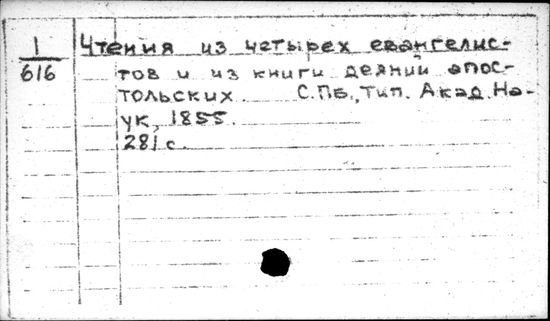 1
616
Чтения из четырех евангелис-
тов и из книги деяний апос-
тольских. С.Пб., Тип. Акад. На-
ук, 1855.
281 с.